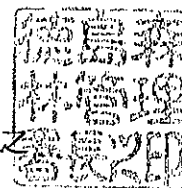 島森
林管理
署長之印
之